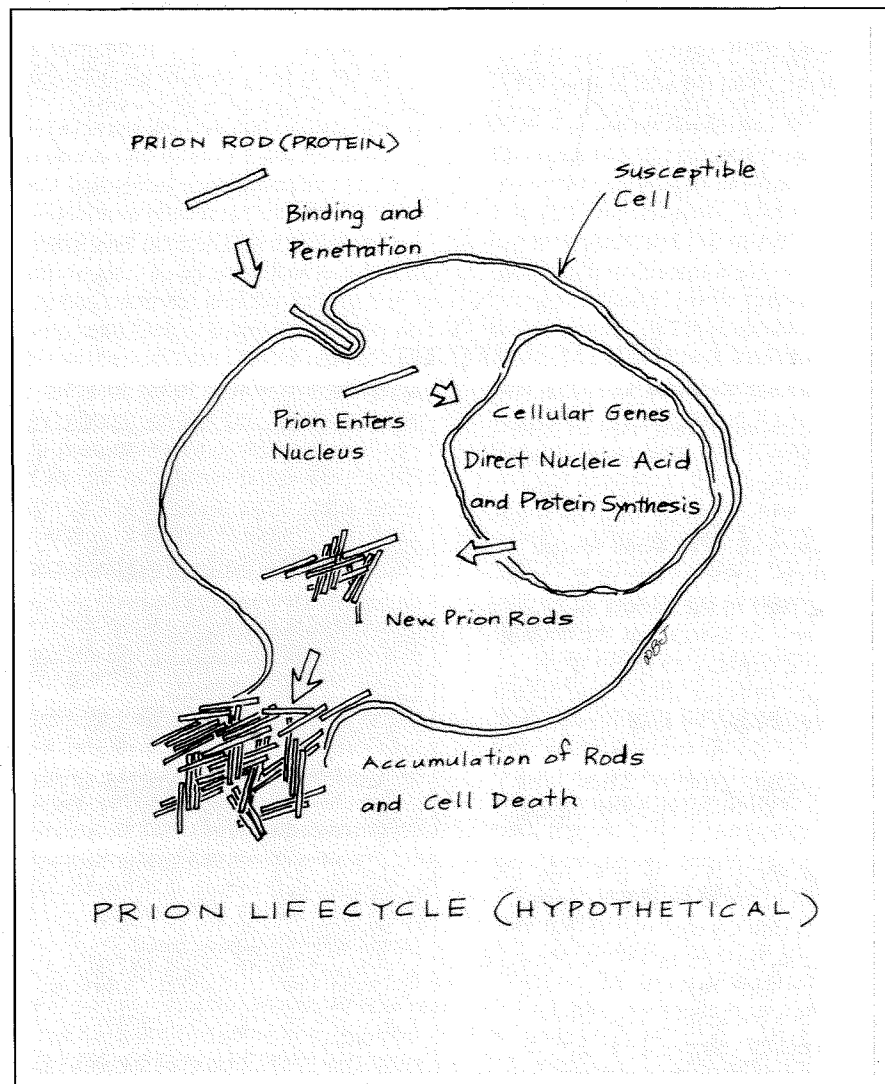 PRION ROD (PROTEIN)
Susceptible
Cell
Binding and
Penetration
Prion Enters
Nucleus
Cellular Genes
Direct Nucleic Acid
and Protein Synthesis
New Prion Rods
Accumulation of Rods
and Cell Death
PRION LIFECYCLE (HYPOTHETICAL)